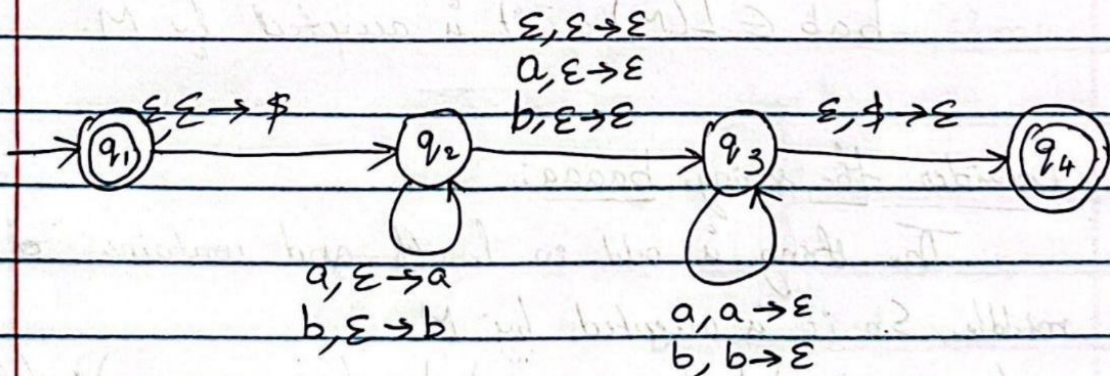 ε, ε → ε
a, ε → ε
b, ε → ε
ε, ε → $
ε, $ → ε
q₁
q₂
q₃
q₄
a, ε → a
b, ε → b
a, a → ε
b, b → ε